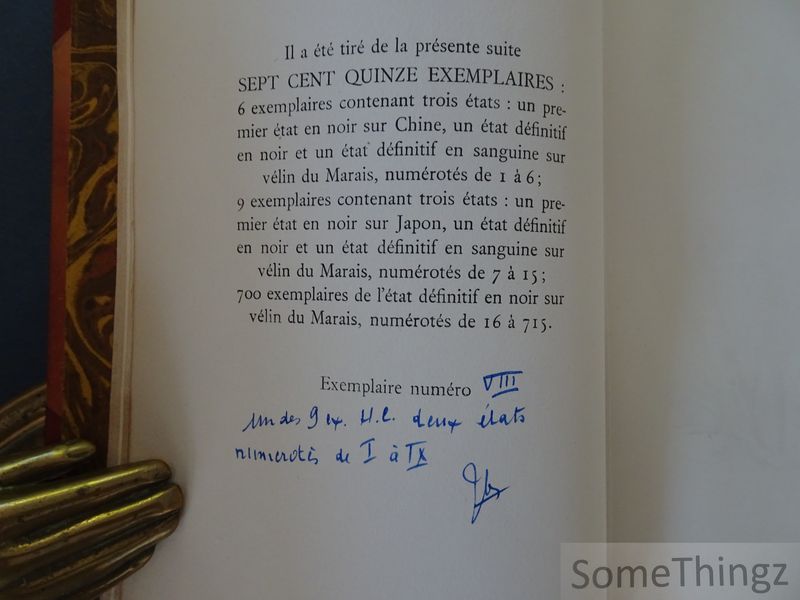 Il a été tiré de la présente suite
SEPT CENT QUINZE EXEMPLAIRES :
6 exemplaires contenant trois états : un pre-
mier état en noir sur Chine, un état définitif
en noir et un état définitif en sanguine sur
vélin du Marais, numérotés de 1 à 6 ;
9 exemplaires contenant trois états : un pre-
mier état en noir sur Japon, un état définitif
en noir et un état définitif en sanguine sur
vélin du Marais, numérotés de 7 à 15 ;
700 exemplaires de l'état définitif en noir sur
vélin du Marais, numérotés de 16 à 715.
Exemplaire numéro VIII
un des 9 ex. H.C. deux états
numerotés de I à IX
SomeThingz